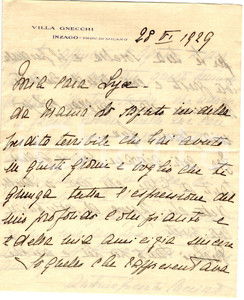 VILLA GNECCHI
INZAGO - PROV. DI MILANO
28 VI 1929
Mia cara
da Mamà ho saputo della
perdita terribile che hai avuto
in questi giorni e voglio che ti
giunga tutta l'espressione del
mio profondo compianto e
della mia amicizia sincera
So quello che rappresentava